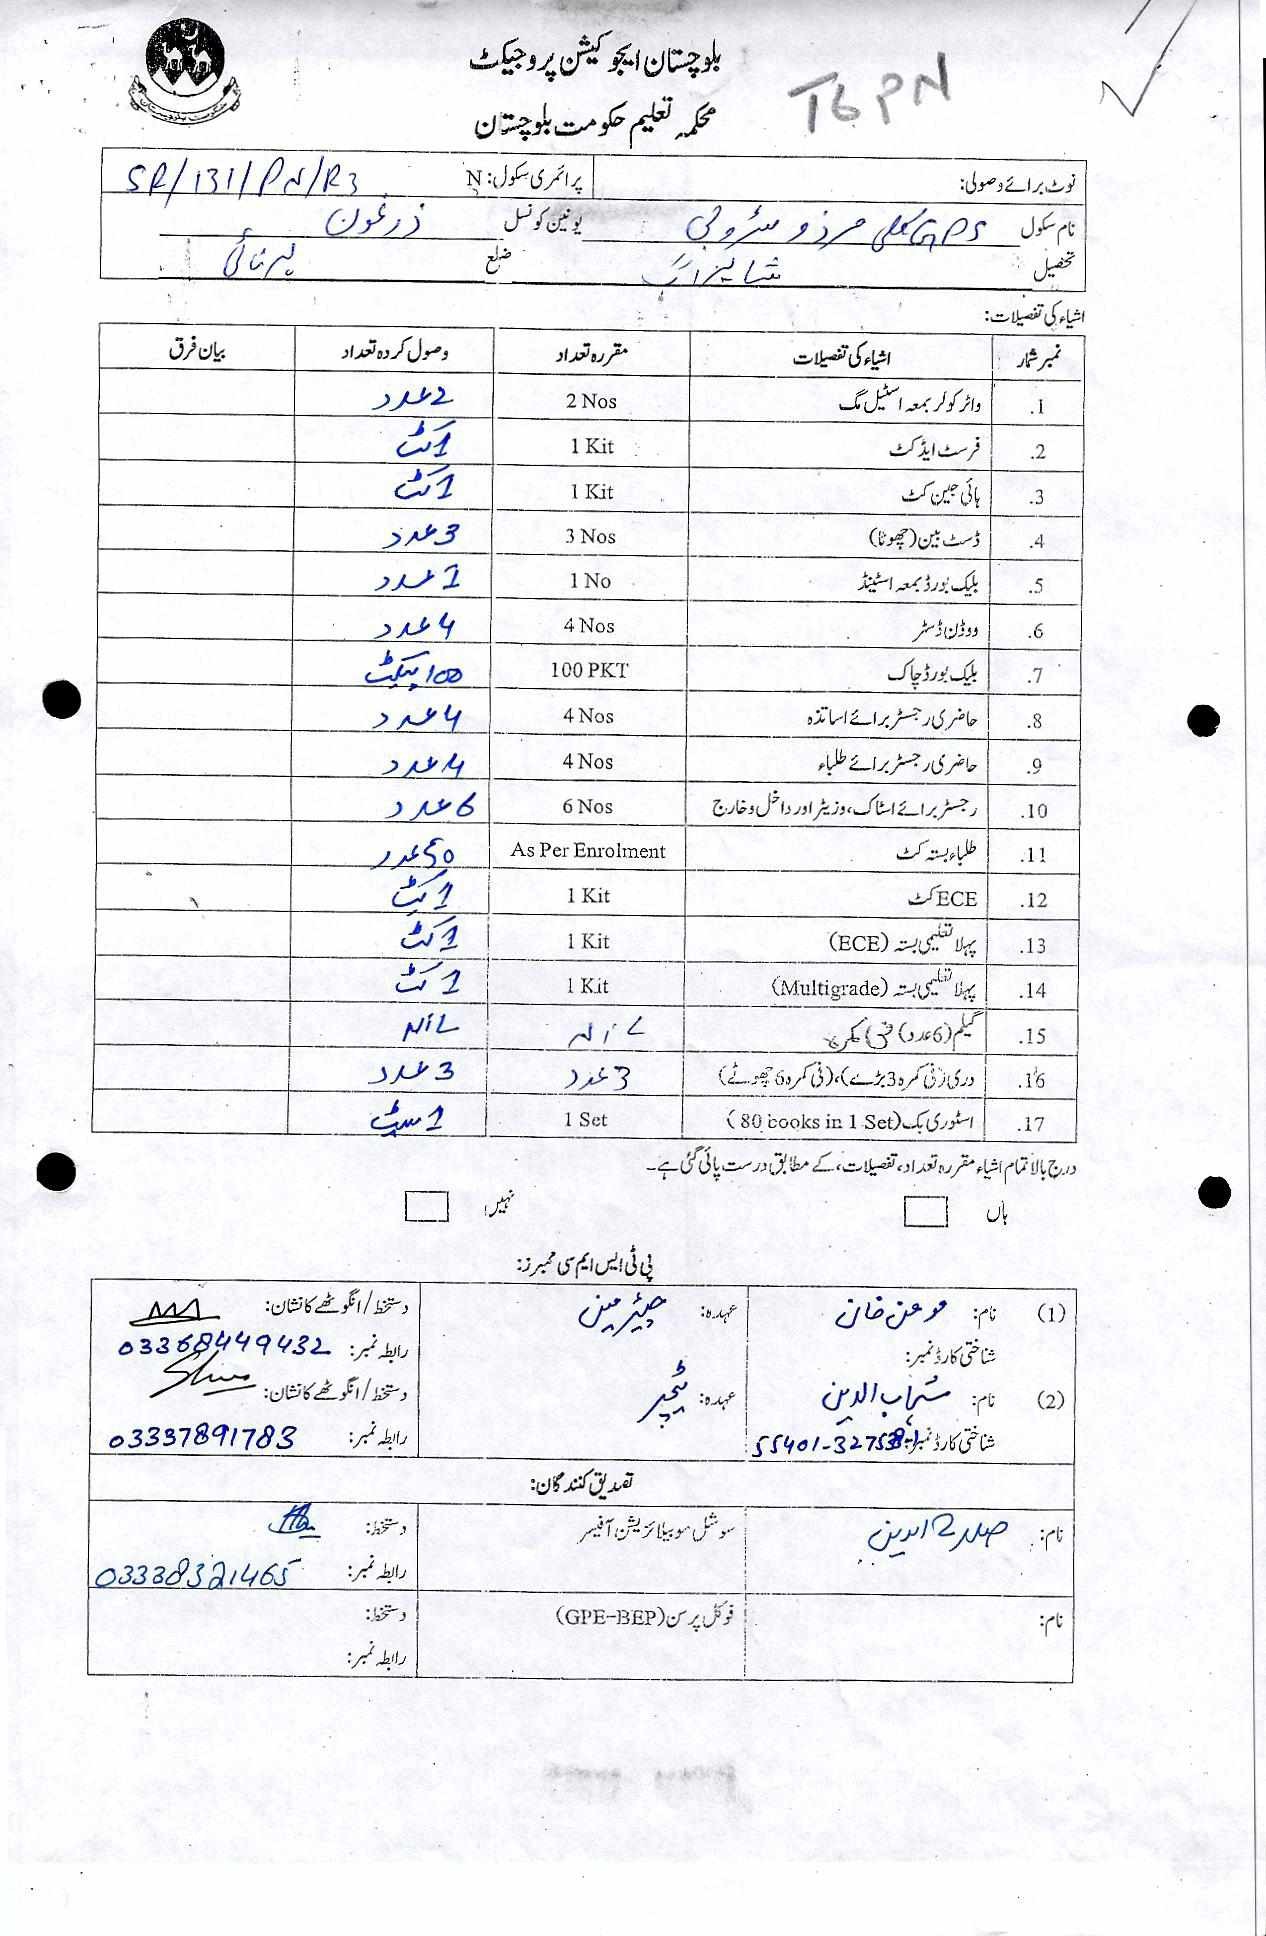 بلوچستان ایجوکیشن پروجیکٹ
TG PN
محکمہ تعلیم حکومت بلوچستان
نوٹ برائے وصولی: پرائمری سکول: N SR/131/PN/R3
نام سکول GPS کلی یونین کونسل زرغون
تحصیل ضلع
اشیاء کی تفصیلات:
نمبر شمار اشیاء کی تفصیلات مقررہ تعداد وصول کردہ تعداد بیان فرق
1. واٹر کولر بمعہ اسٹیل مگ 2 Nos 2 عدد
2. فرسٹ ایڈ کٹ 1 Kit 1 کٹ
3. ہائی جین کٹ 1 Kit 1 کٹ
4. ڈسٹ بین (چھوٹا) 3 Nos 3 عدد
5. بلیک بورڈ بمعہ اسٹینڈ 1 No 1 عدد
6. ووڈن ڈسٹر 4 Nos 4 عدد
7. بلیک بورڈ چاک 100 PKT 100 پیکٹ
8. حاضری رجسٹر برائے اساتذہ 4 Nos 4 عدد
9. حاضری رجسٹر برائے طلباء 4 Nos 4 عدد
10. رجسٹر برائے اسٹاک، وزیٹر اور داخل و خارج 6 Nos 6 عدد
11. طلباء بستہ کٹ As Per Enrolment 50 عدد
12. ECE کٹ 1 Kit 1 کٹ
13. پہلا تعلیمی بستہ (ECE) 1 Kit 1 کٹ
14. پہلا تعلیمی بستہ (Multigrade) 1 Kit 1 کٹ
15. گیلم (6 عدد) فی کمرہ NIL NIL
16. دری (فی کمرہ 3 بڑے)، (فی کمرہ 6 چھوٹے) 3 عدد 3 عدد
17. اسٹوری بک (80 books in 1 Set) 1 Set 1 سیٹ
درج بالا تمام اشیاء مقررہ تعداد، تفصیلات، کے مطابق درست پائی گئی ہے۔
ہاں نہیں
پی ٹی ایس ایم سی ممبرز:
(1) نام: مومن خان عہدہ: چیئرمین دستخط/انگوٹھے کا نشان:
شناختی کارڈ نمبر: رابطہ نمبر: 03368449432
(2) نام: شہاب الدین عہدہ: ٹیچر دستخط/انگوٹھے کا نشان:
شناختی کارڈ نمبر: رابطہ نمبر: 03337891783
تصدیق کنندگان:
نام: صلاح الدین سوشل موبیلائزیشن آفیسر دستخط:
رابطہ نمبر: 03338321465
نام: فوکل پرسن (GPE-BEP) دستخط:
رابطہ نمبر: